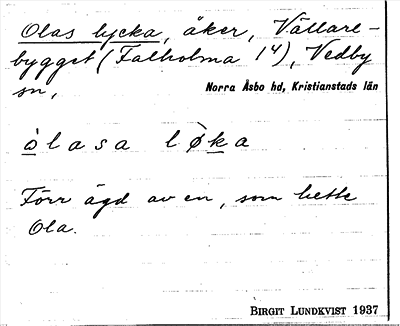 Olas lycka, åker, Vällare-
bygget (Falholma 1⁴), Vedby
sn,
Norra Åsbo hd, Kristianstads län
òlasa lø̀ka
Förr ägd av en, som hette
Ola.
BIRGIT LUNDKVIST 1937